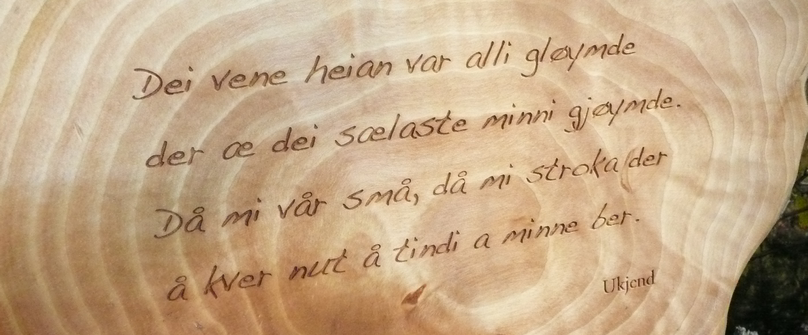 Dei vene heian var alli gløymde
der æ dei sælaste minni gjøymde.
Då mi vår små, då mi stroka der
å kver nut å tindi a minne ber.
Ukjend